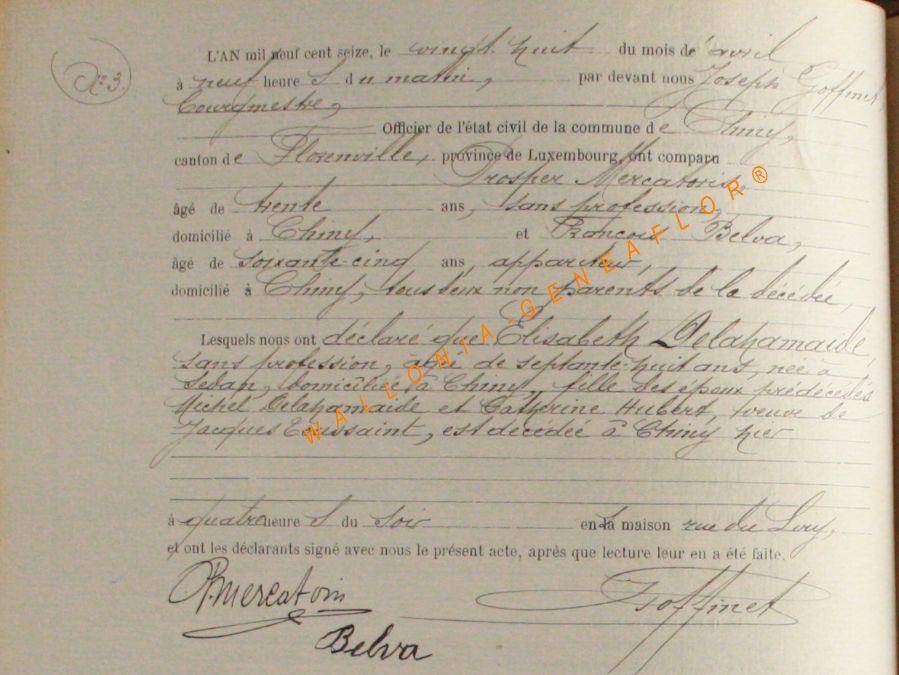 N° 3.
L'AN mil neuf cent seize, le vingt huit du mois de avril
à neuf heure s du matin, par devant nous Joseph Goffinet,
bourgmestre,
Officier de l'état civil de la commune de Chiny,
canton de Florenville, province de Luxembourg, ont comparu
Prosper Mercatoris,
âgé de trente ans, sans profession,
domicilié à Chiny, et François Belva,
âgé de soixante-cinq ans, appariteur,
domicilié à Chiny, tous deux non parents de la décédée,
Lesquels nous ont déclaré que Elisabeth Delahamaide
sans profession, âgée de septante-huit ans, née à
Sedan, domiciliée à Chiny, fille des époux prédécédés
Michel Delahamaide et Catherine Hubert, veuve de
Jacques Toussaint, est décédée à Chiny hier
à quatre heure s du soir en sa maison rue du
et ont les déclarants signé avec nous le présent acte, après que lecture leur en a été faite.
Goffinet
Belva
WALLONIA-GENEAFLOR®